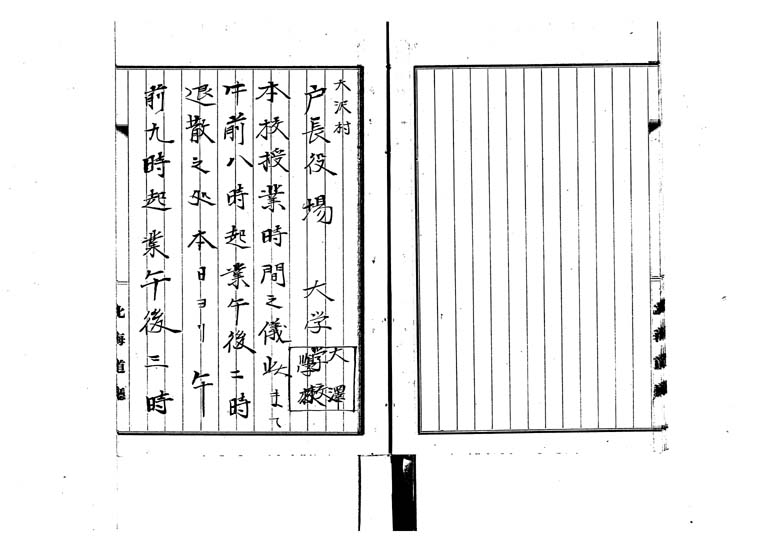 大沢村
戸長役場　大学
大澤
学校
本校授業時間之儀此まて
午前八時起業午後二時
退散之処本日ヨリ午
前九時起業午後三時
北海道廳